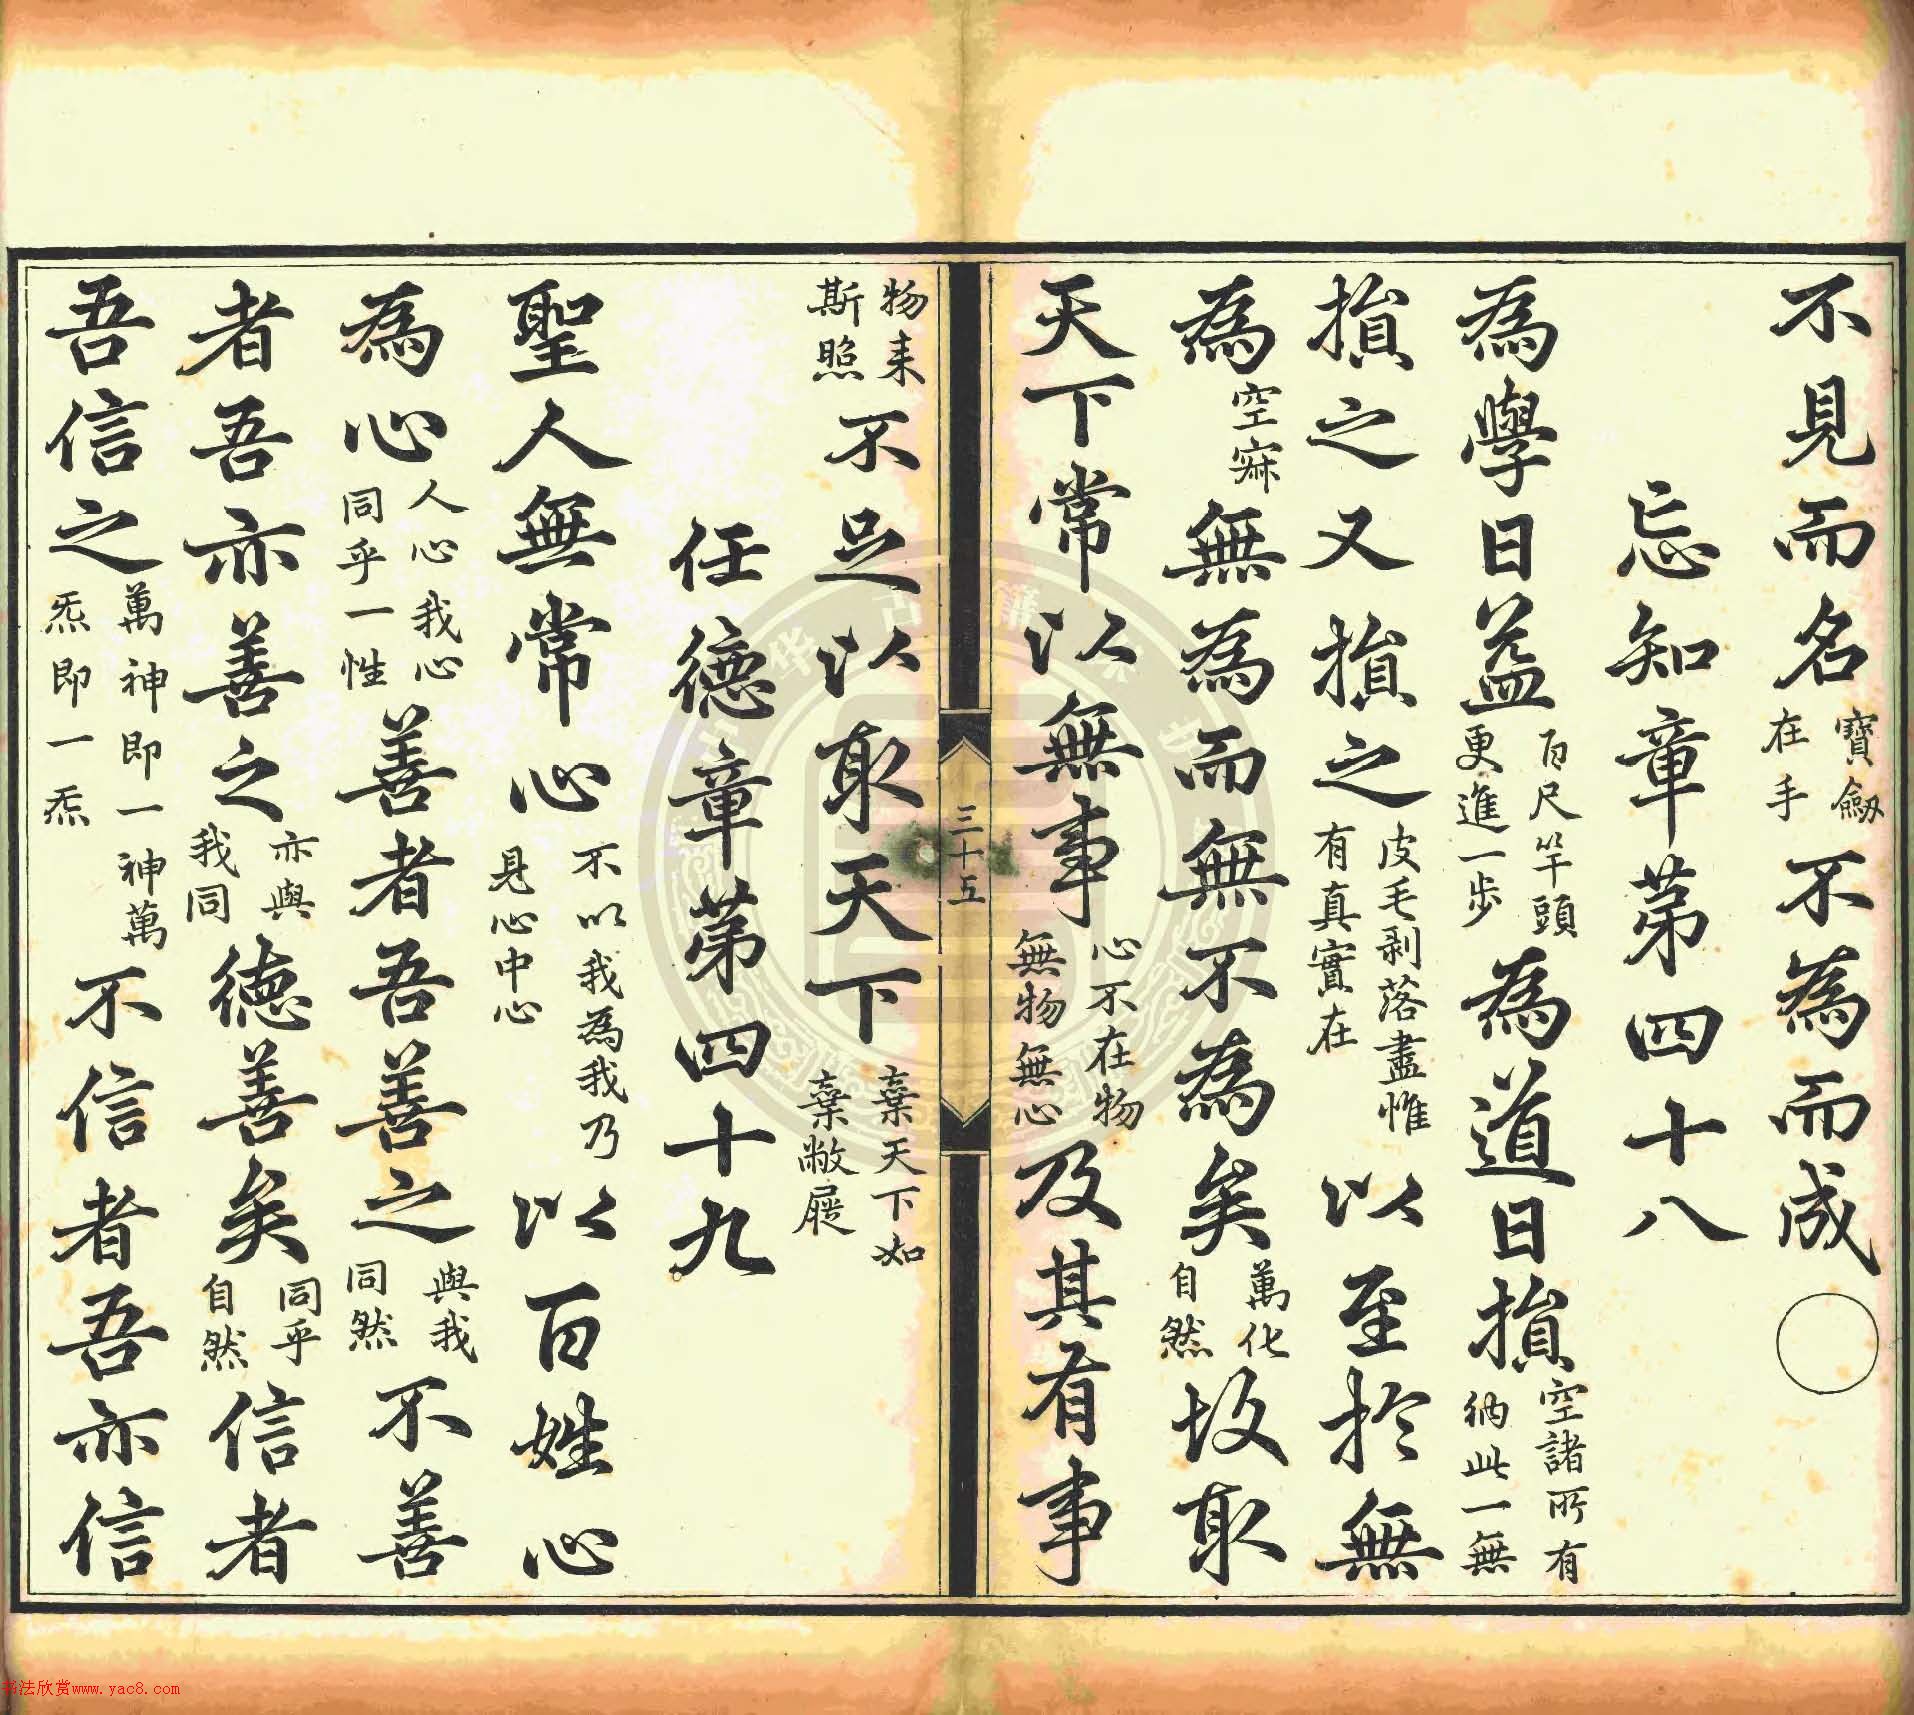 不見而名寶劒在手不為而成
忘知章第四十八
為學日益百尺竿頭更進一步為道日損空諸所有納此一無
損之又損之皮毛剥落盡惟有真實在以至於無
為空寂無為而無不為矣萬化自然故取
天下常以無事心不在物無物無心及其有事
三十五
物来斯照不足以取天下棄天下如棄敝屣
任德章第四十九
聖人無常心不以我為我乃見心中心以百姓心
為心人心我心同乎一性善者吾善之與我同然不善
者吾亦善之亦與我同德善矣同乎自然信者
吾信之萬神即一神萬炁即一炁不信者吾亦信
书法欣赏www.yac8.com